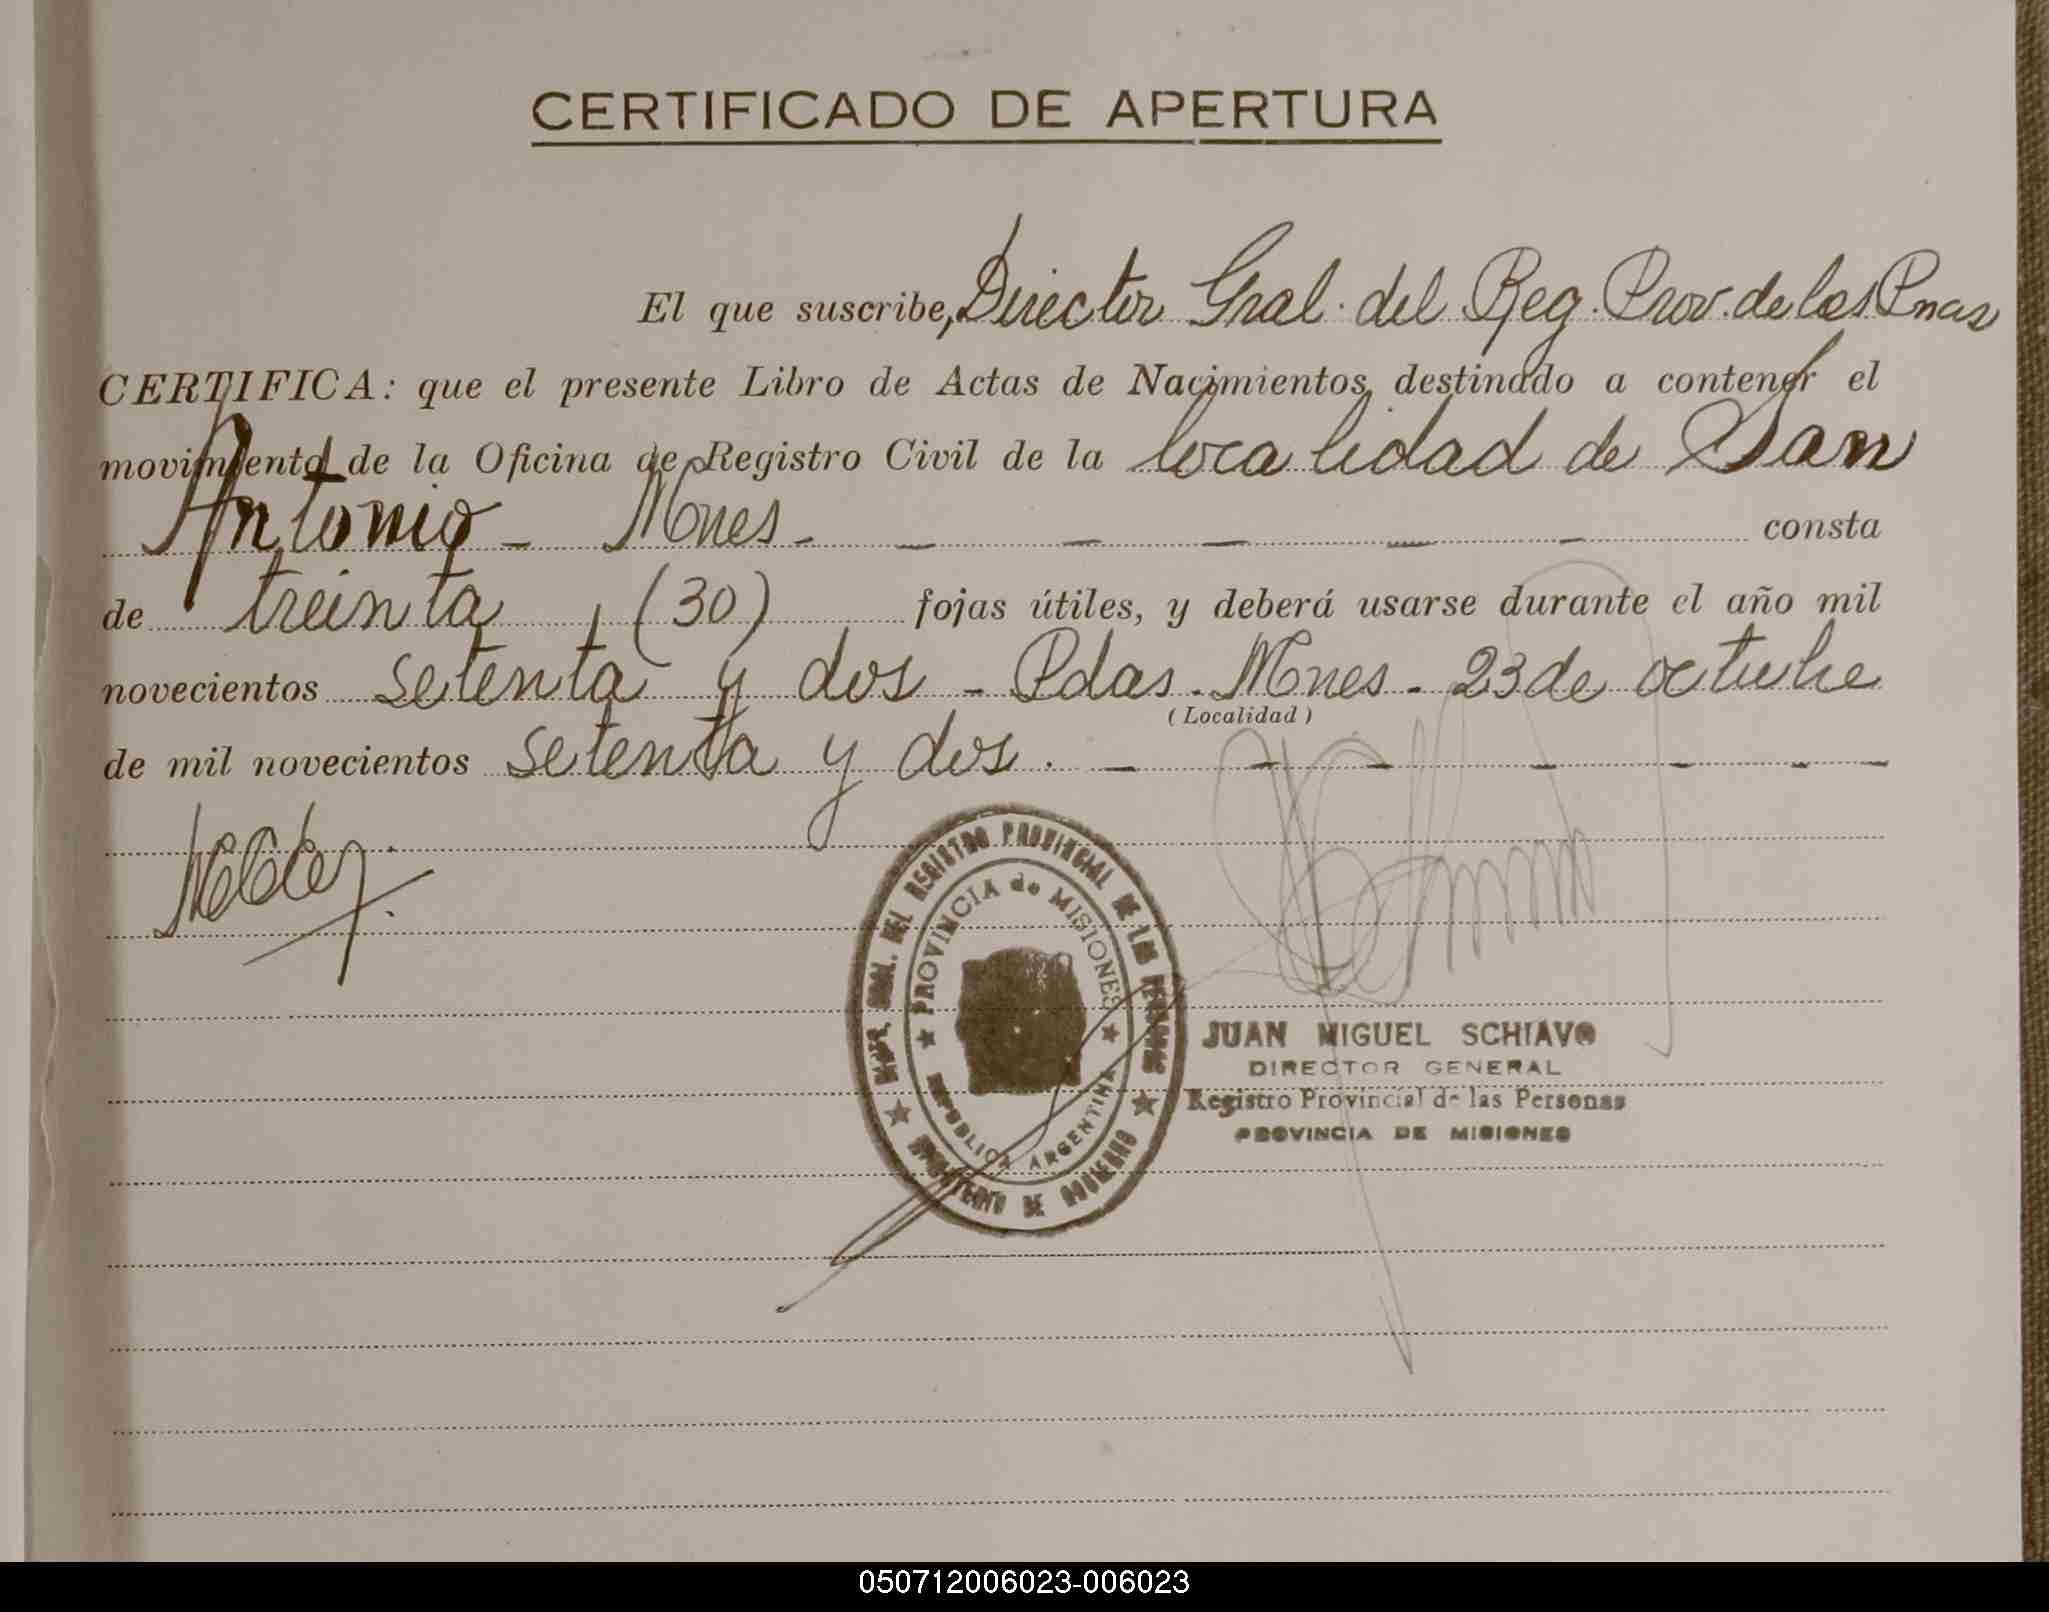 CERTIFICADO DE APERTURA
El que suscribe, Director Gral. del Reg. Prov. de las Pnas
CERTIFICA: que el presente Libro de Actas de Nacimientos, destinado a contener el
movimiento de la Oficina de Registro Civil de la localidad de San
Antonio - Mnes - — — — — — consta
de treinta (30) fojas útiles, y deberá usarse durante el año mil
novecientos setenta y dos - Pdas. Mnes - 23 de octubre
(Localidad)
de mil novecientos setenta y dos. — — — — — — —
GRAL. DEL REGISTRO PROVINCIAL DE LAS PERSONAS
PROVINCIA de MISIONES
REPUBLICA ARGENTINA
MINISTERIO DE GOBIERNO
JUAN MIGUEL SCHIAVO
DIRECTOR GENERAL
Registro Provincial de las Personas
PROVINCIA DE MISIONES
050712006023-006023